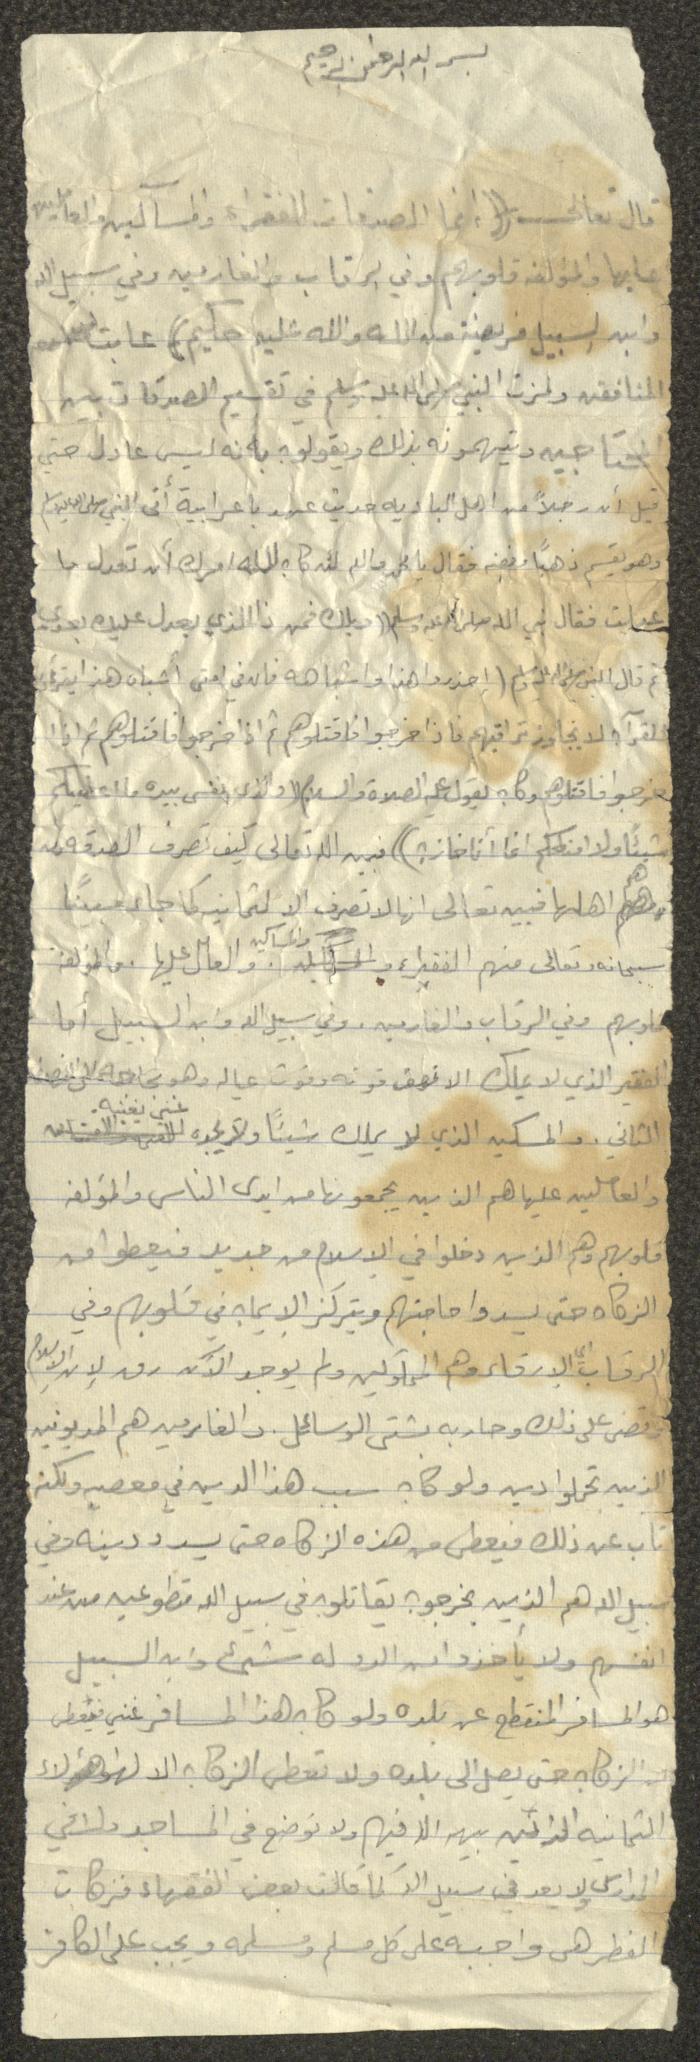 بسم الله الرحمن الرحيم
قال تعالى (( انما الصدقات للفقراء والمساكين والعاملين
عليها والمؤلفه قلوبهم وفي الرقاب والغارمين وفي سبيل الله
وابن السبيل فريضة من الله والله عليم حكيم )) عابت
المنافقين ولمزت النبي صلى الله عليه وسلم في تقسيم الصدقات بين
المحتاجين وتتهمونه بذلك ويقولون بأنه ليس عادل حتى
قيل أن رجلاً من اهل الباديه حديث عهد باعرابية أتى النبي صلى الله عليه وسلم
وهو يقسم ذهباً وفضه فقال يا محمد والله لئن كان الله امرك أن تعدل ما
عدلت فقال نبي الله صلى الله عليه وسلم (( ويلك فمن ذا الذي يعدل عليك بعدي
ثم قال النبي صلى الله عليه وسلم (( إحذروا هذا واشباهه فان في امتي أشباه هذا يقرؤن
القرآن لا يجاوز تراقيهم فاذا خرجوا فاقتلوهم ثم اذا خرجوا فاقتلوهم ثم اذا
خرجوا فاقتلوهم وكان يقول عليه الصلاة والسلام (( والذي نفسي بيده ما اعطيكم
شيئاً ولا امنعكم انما أنا خازن )) فبين الله تعالى كيف تصرف الصدقه ومن
هم اهلها فبين تعالى انها لا تصرف الا لثمانيه كما جاء مبيناً
سبحانه وتعالى منهم الفقراء والمساكين . والعامل عليها . والمؤلفه
قلوبهم وفي الرقاب والغارمين . وفي سبيل الله وابن السبيل أما
الفقير الذي لا يملك الا نصف قوته وقوت عياله وهو بحاجه الى النصف
الثاني . والمسكين الذي لا يملك شيئاً ولا يجد غنى يغنيه
والعاملين عليها هم الذين يجمعونها من ايدي الناس والمؤلفه
قلوبهم وهم الذين دخلوا في الاسلام من جديد فيعطوا من
الزكاه حتى يسدوا حاجتهم ويتركز الايمان في قلوبهم وفي
الرقاب أي الارقاء وهم المملوكين ولم يوجد الآن رق لان الاسلام
قضى على ذلك وحاربه بشتى الوسائل . والغارمين هم المديونين
الذين تحملوا دين ولو كان سبب هذا الدين في معصيه ولكنه
تاب عن ذلك فيعطى من هذه الزكاه حتى يسدد دينه وفي
سبيل الله هم الذين يخرجون يقاتلون في سبيل الله متطوعين من عند
انفسهم ولا يأخذوا من الدوله شيئ وابن السبيل
هو المسافر المنقطع عن بلده ولو كان هذا المسافر غني فيعطى
من الزكاه حتى يصل الى بلده ولا تعطى الزكاه الا لهؤلاء
الثمانيه الذين بين الله فيهم ولا توضع في المساجد ولا في
المدارس ولا يعد في سبيل الله كما قالت بعض الفقهاء فزكات
الفطر هي واجبه على كل مسلم ومسلمه ويجب على الكافر